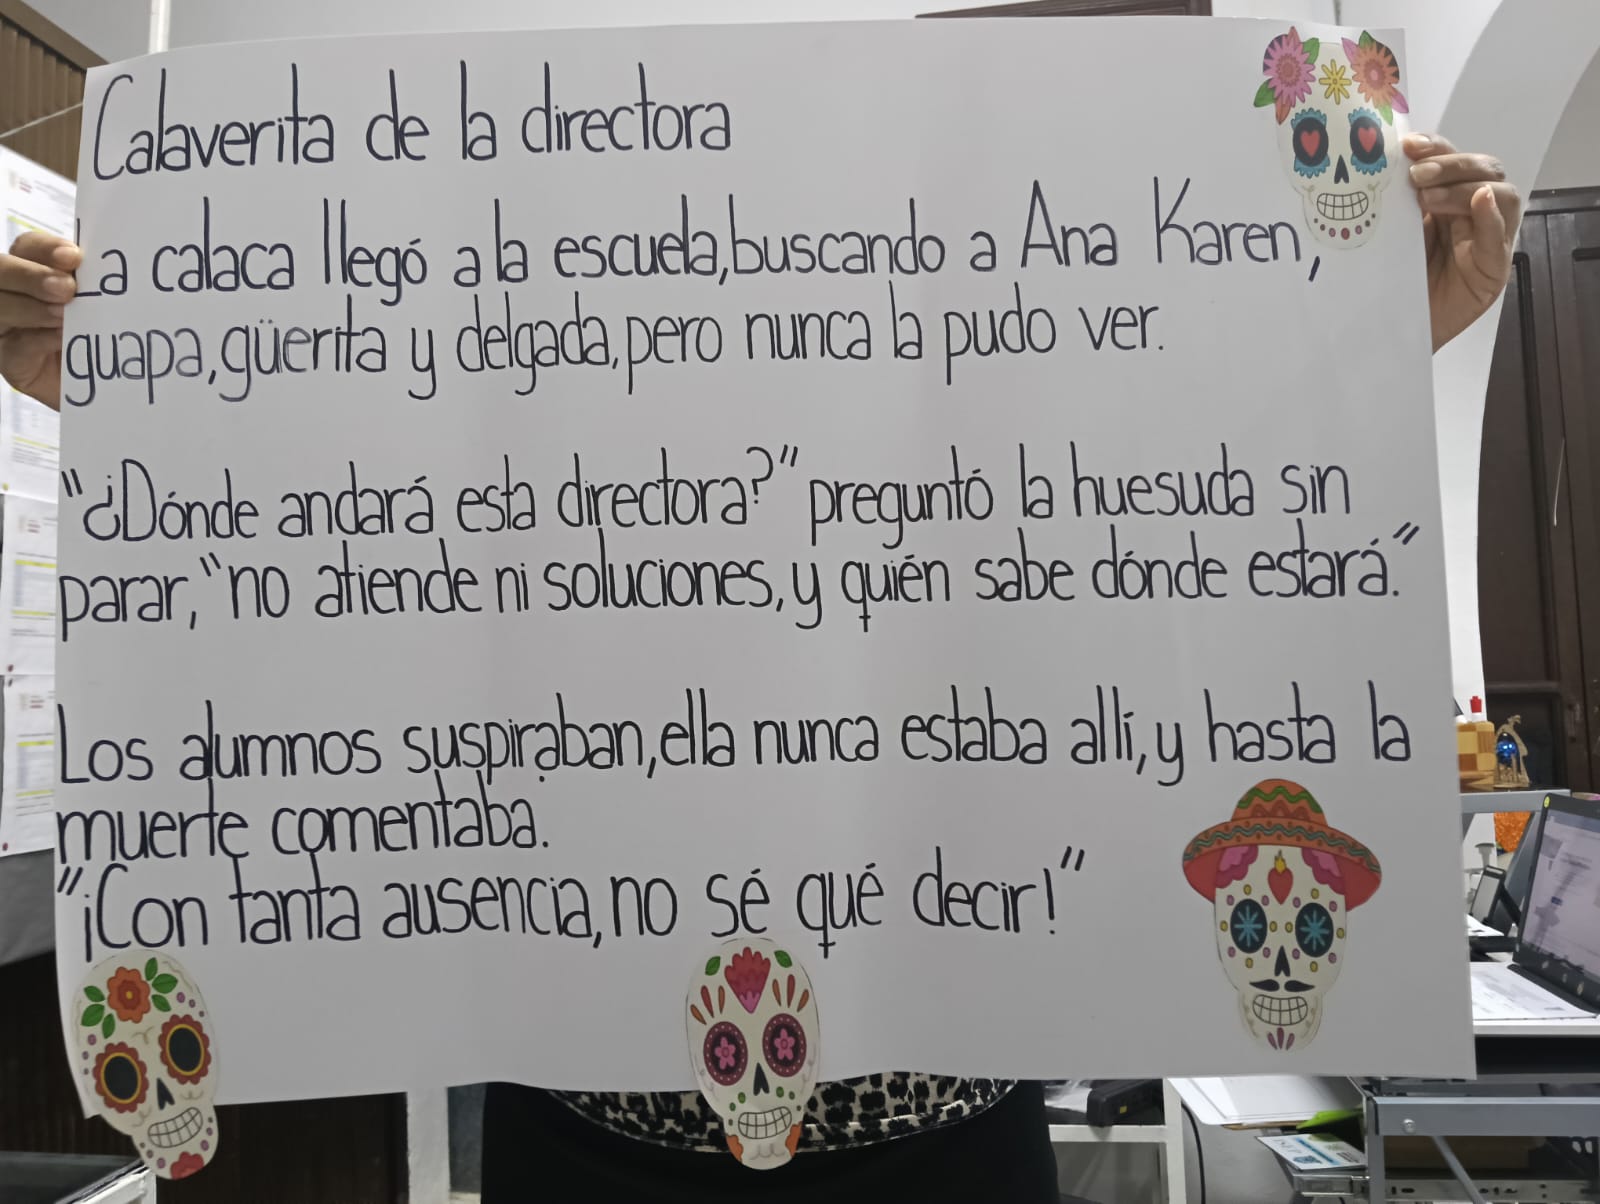 Calaverita de la directora
La calaca llegó a la escuela, buscando a Ana Karen,
guapa, güerita y delgada, pero nunca la pudo ver.
"¿Dónde andará esta directora?" preguntó la huesuda sin
parar, "no atiende ni soluciones, y quién sabe dónde estará."
Los alumnos suspiraban, ella nunca estaba allí, y hasta la
muerte comentaba.
"¡Con tanta ausencia, no sé qué decir!"